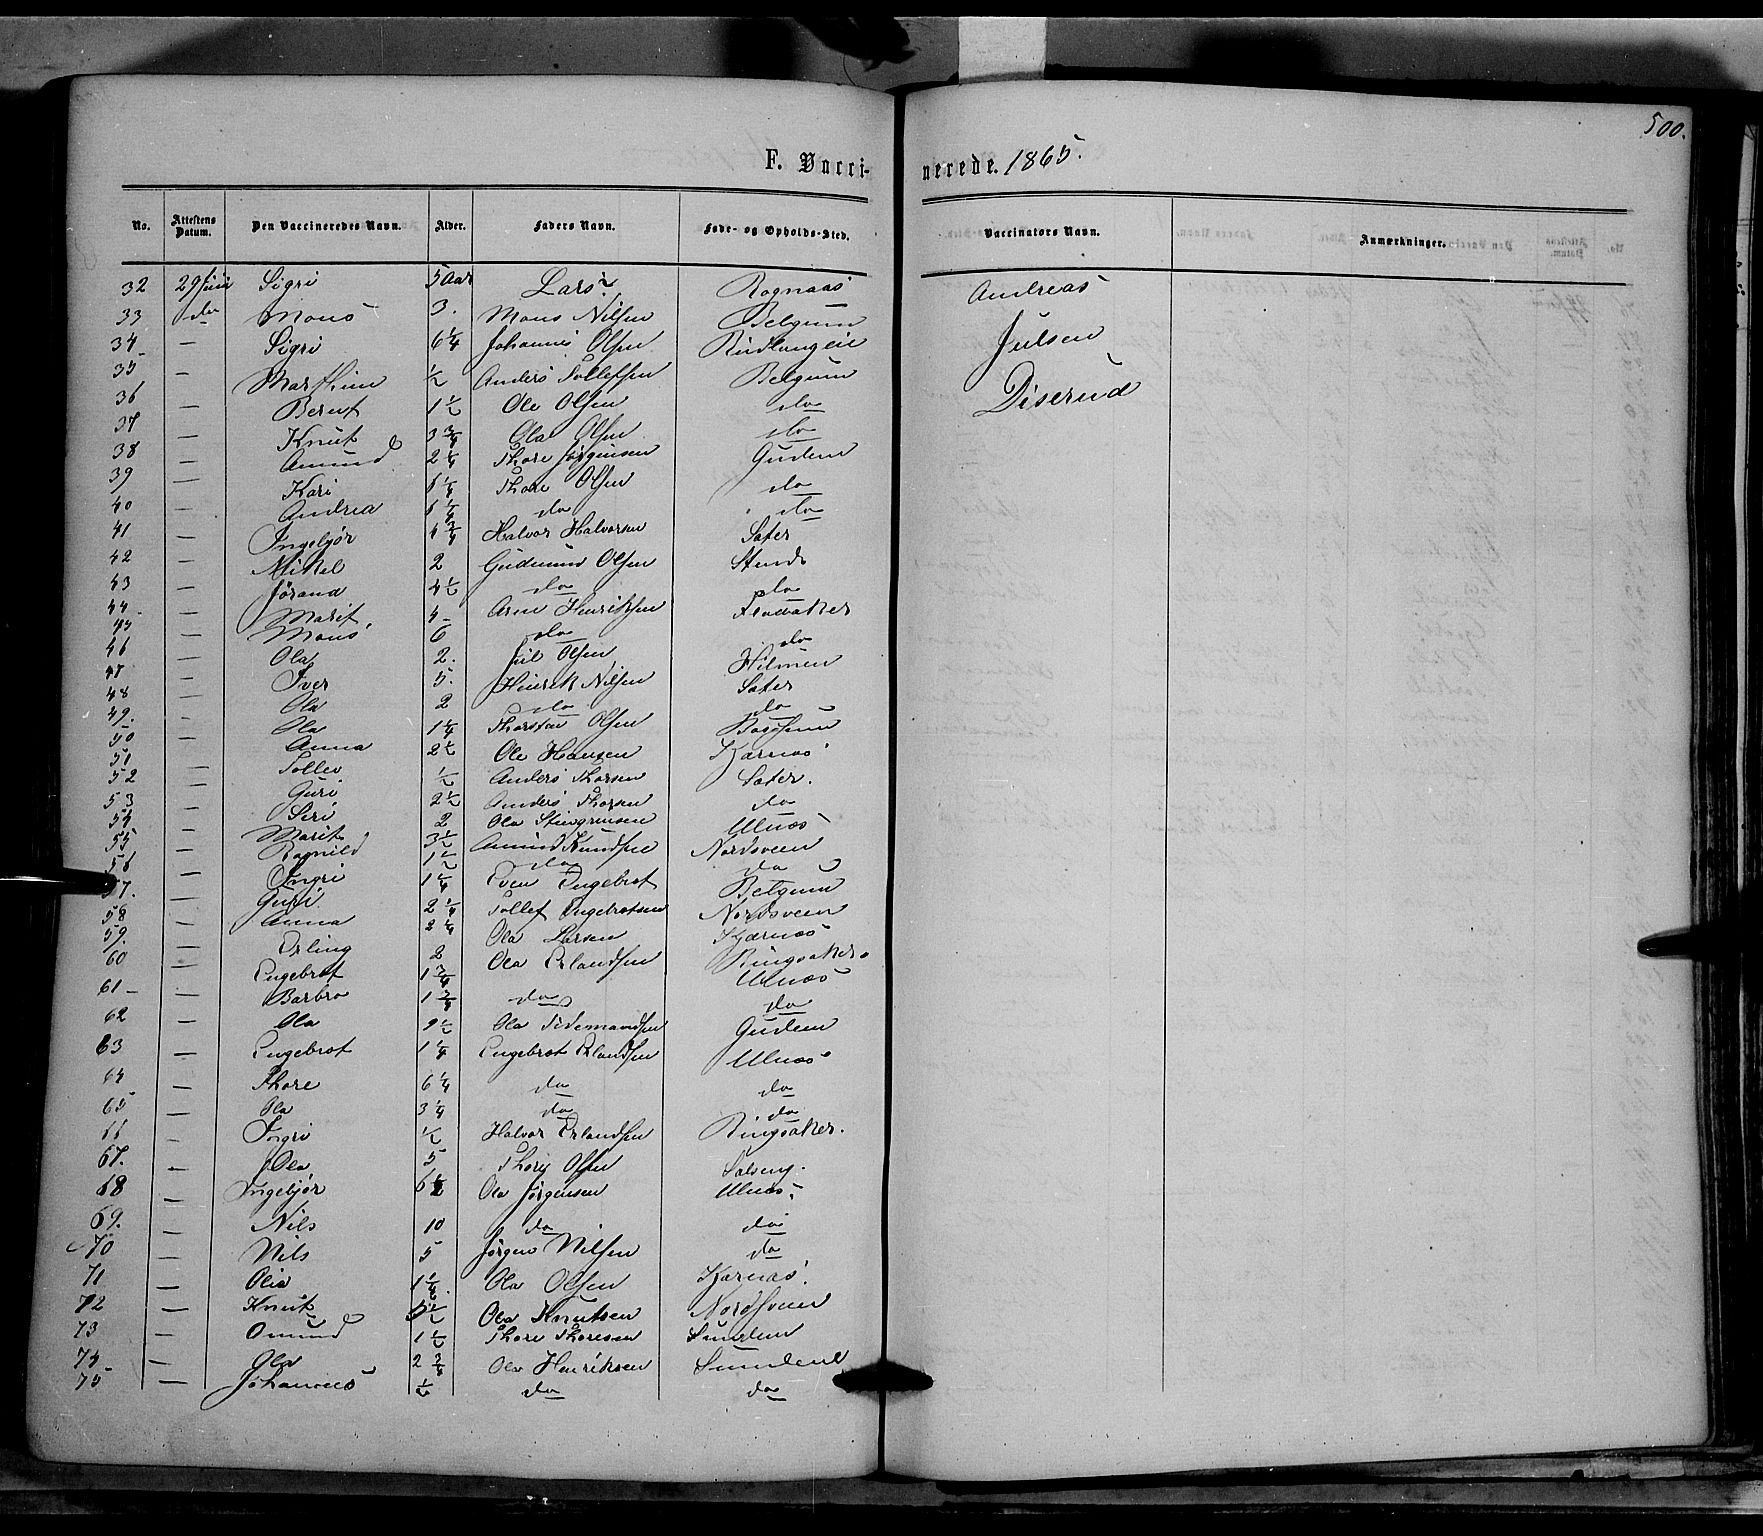 500.
F. Vacci- nerede. 1865.
No. Attestens Datum. Den Vaccineredes Navn. Alder. Faders Navn. Føde- og Opholds-Sted. Vaccinators Navn. Anmærkninger.
32 29 Juni Sigri 5 Aar Lars Rognaas Andreas
33 do Mons 3. Mons Nilsen Belgum Julsen
34 — Sigri 6 1/4 Johannes Olsen
35 — Marthin 1/2 Anders Tollefsen Belgum Diserud
36 — Bernt 1 1/2 Ole Olsen do
37 — Knut 3 3/4 Ola Olsen do
38 — Amund 2 1/4 Thore Jørgensen Gudem
39 — Kari Thore Olsen do
40 — Andrea do do
41 — Ingebjør Halvor Halvorsen Sater
42 — Mikel 2 Gudmund Olsen
43 — Jørand 4 1/2 do do
44 — Marit 4 Arne Henriksen
45 — Mons 6 do do
46 — Ola 2. Jul Olsen Hilmen
47 — Iver 5. Henrik Nilsen Sater
48 — Ola 2 do do
49. — Ola 1 1/4 Thorsten Olsen
50 — Anna 2 1/2 Ole Hansen Kjærnæs
51 — Tollev 1/2 Anders Thorsen Sater.
52 — Guri 2 1/2 Anders Thorsen do
53 — Siri 2 Ola Ulnæs
54 — Marit 3 1/2 Amund Knudsen Nordsveen
55 — Ragnild 1 1/2 do do
56 — Ingri 1 1/4 Even Engebret Belgum
57. — Guri 2 1/4 Tollef Engebretsen Nordsveen
58 — Anna 2 1/4 Ola Larsen Kjærnæs
59. — Erling 2 Ola Erlandsen Ringsaker
60 — Engebret 1 3/4 Ulnæs
61 — Barbro 1 3/4 do do
62 — Ola 9 1/2 Ola Tidemandsen Gudem
63 — Engebret 1 1/4 Engebret Erlandsen Ulnæs
64 — Thore 6 1/4 do do
65 — Ola 3 1/4 do do
66 — Ingri 1/2 Halvor Erlandsen Ringsaker.
67. — Ola 5 Olsen
68 — Ingebjør Ola Jørgensen Ulnæs
69. — Nils 10 do do
70 — Nils 5 Jørgen Nilsen do
71 — Olia Ola Olsen Kjærnæs.
72 — Knut 5 1/2 Ola Knutsen Nordsveen
73 — Omund 1 1/2 Thore Thoresen
74 — Ola 2 3/4 Ola Henriksen
75 — Johannes do do